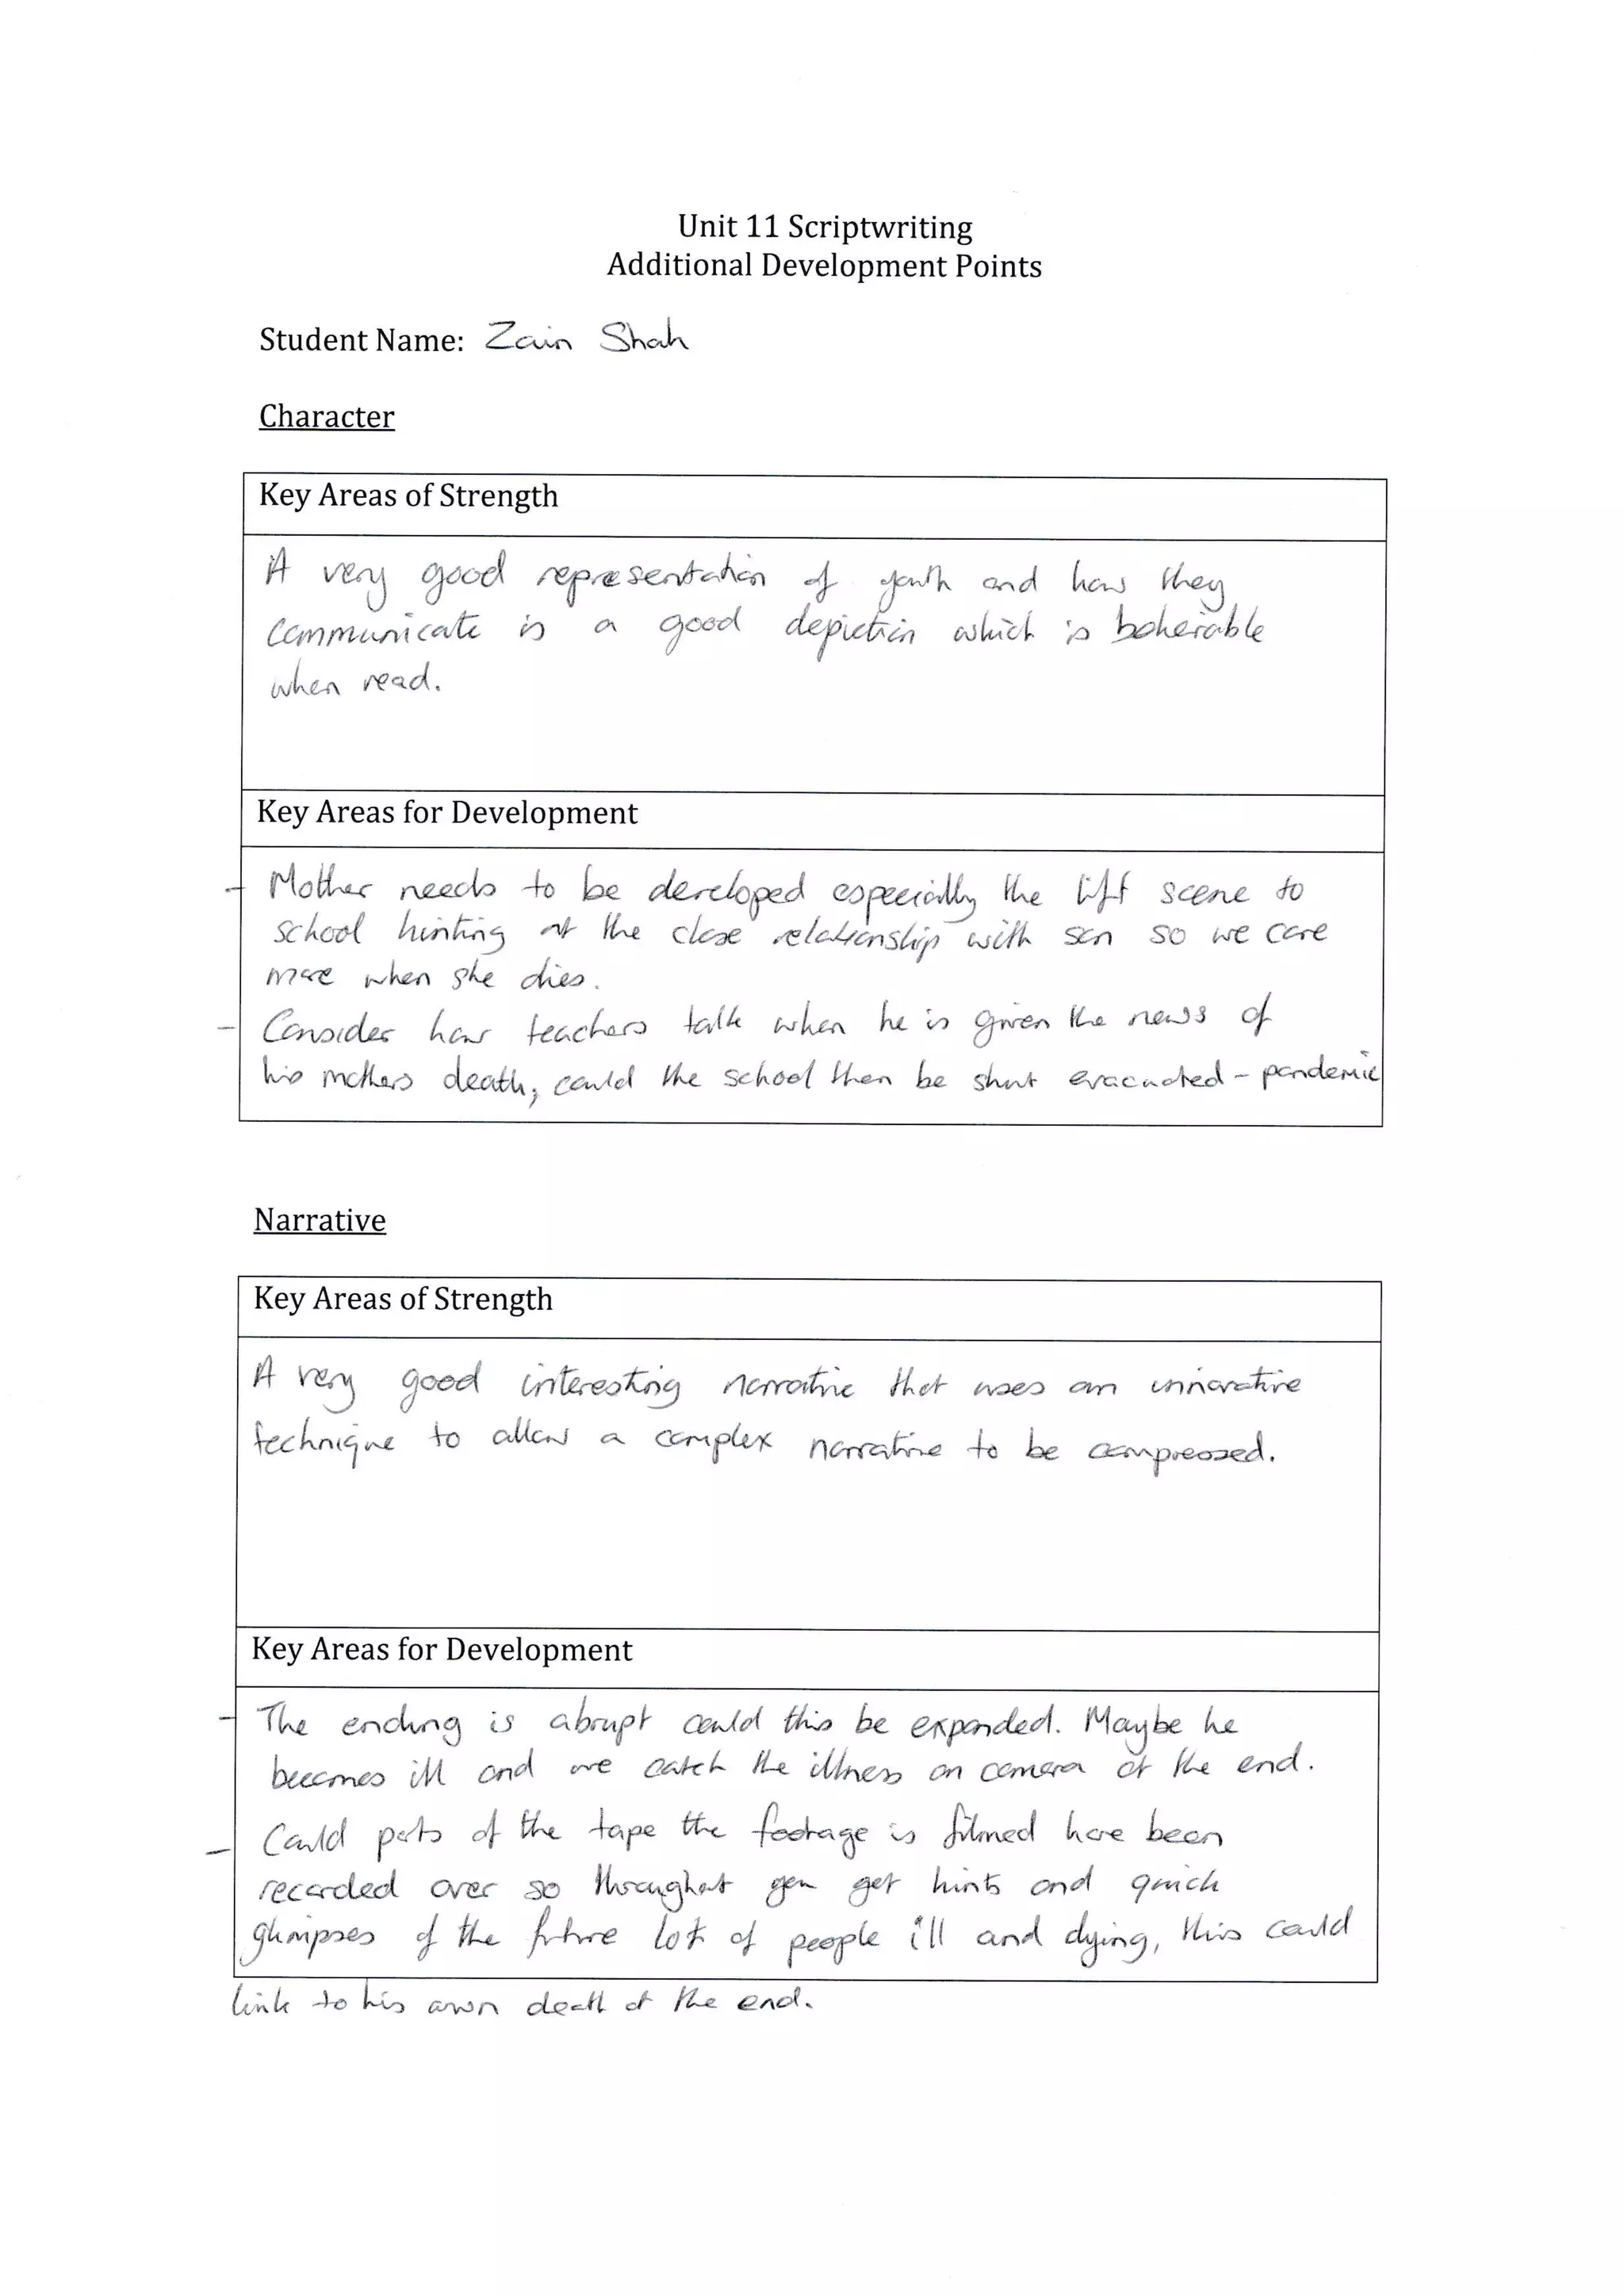 Unit 11 Scriptwriting
Additional Development Points
Student Name: Zain Shah
Character
Key Areas of Strength
A very good representation of youth and how they
communicate is a good depiction which is believable
when read.
Key Areas for Development
- Mother needs to be developed especially the lift scene to
school hinting at the close relationship with son so we care
more when she dies.
- Consider how teachers talk when he is given the news of
his mothers death, could the school then be shut evacuated - pandemic
Narrative
Key Areas of Strength
A very good interesting narrative that uses an innovative
technique to allow a complex narrative to be compressed.
Key Areas for Development
- The ending is abrupt could this be expanded. Maybe he
becomes ill and we catch the illness on camera at the end.
- Could parts of the tape the footage is filmed have been
recorded over so throughout you get hints and quick
glimpses of the future lot of people ill and dying, this could
link to his own death at the end.